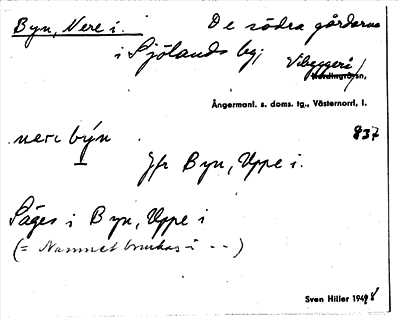 Byn, Nere i. De södra gårdarna
i Sjölands by;
Vibyggerå
Nordingrå sn,
Ångermanl. s. doms. tg., Västernorrl. l.
nere býn 837
Jfr Byn, Uppe i.
Säges i Byn, Uppe i
(= Namnet brukas i --)
Sven Hiller 1948